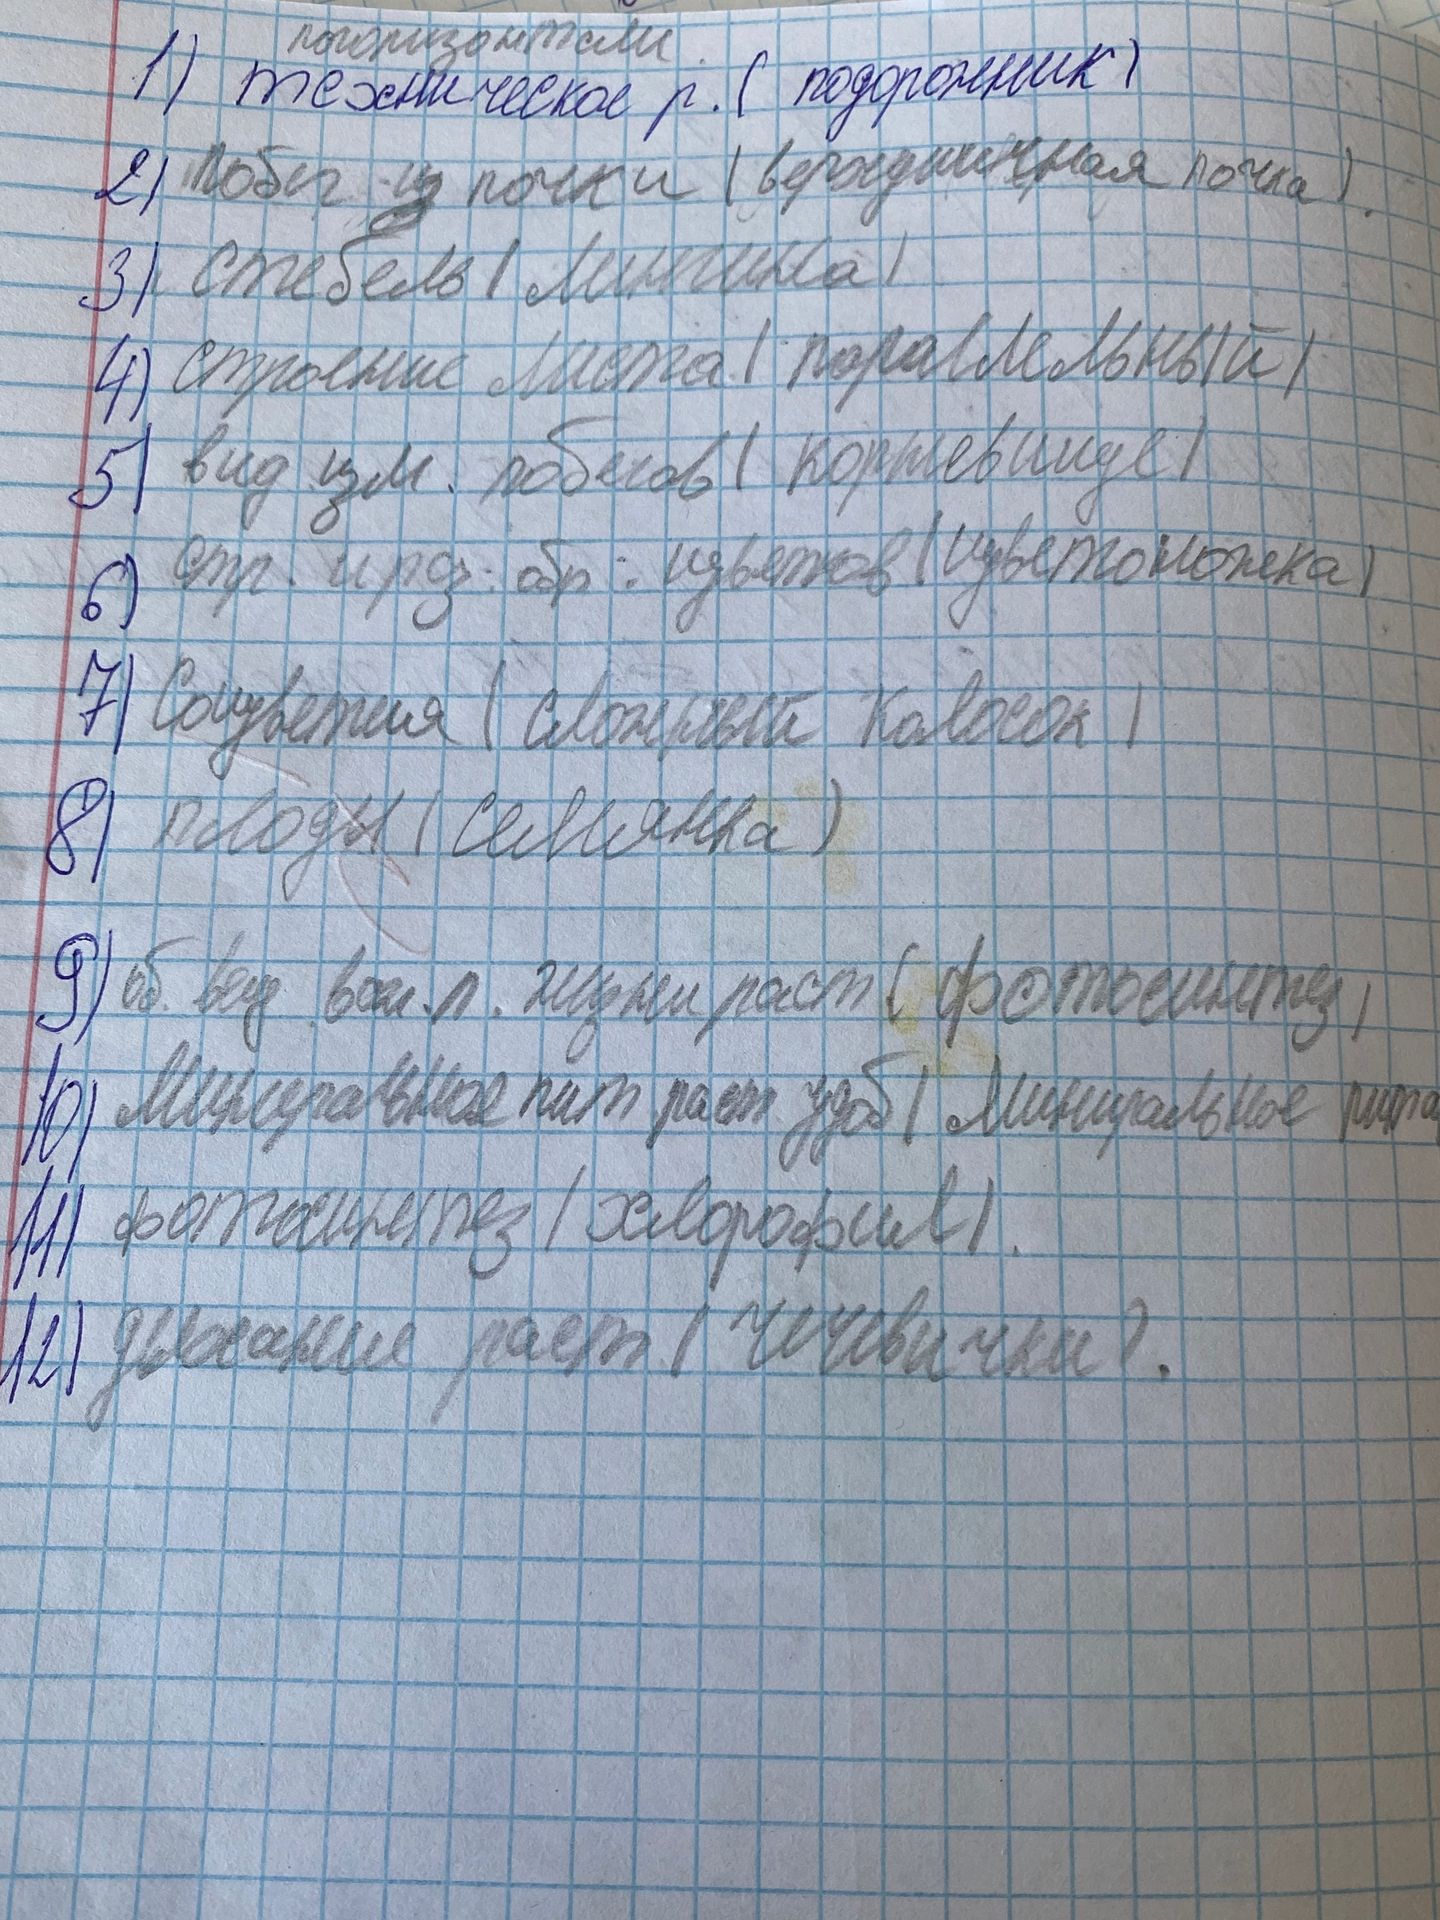 погоризонтали.
1) техническое р. (подорожник)
2) Побег из почки (верхушичная почка).
3) Стебель (Линчинка)
4) строение листа (параллельный)
5) вид изм. побегов (корневище)
6) стр. и раз. обр. цветков (цветоножка)
7) Соцветия (сложный колосок)
8) плоды (семянка)
9) об. вещ. важ. п. жизни раст (фотосинтез)
10) Минеральное пит раст. удоб (Минеральное пита
11) фотосинтез (хлорофил).
12) дыхание раст. (чичевички).